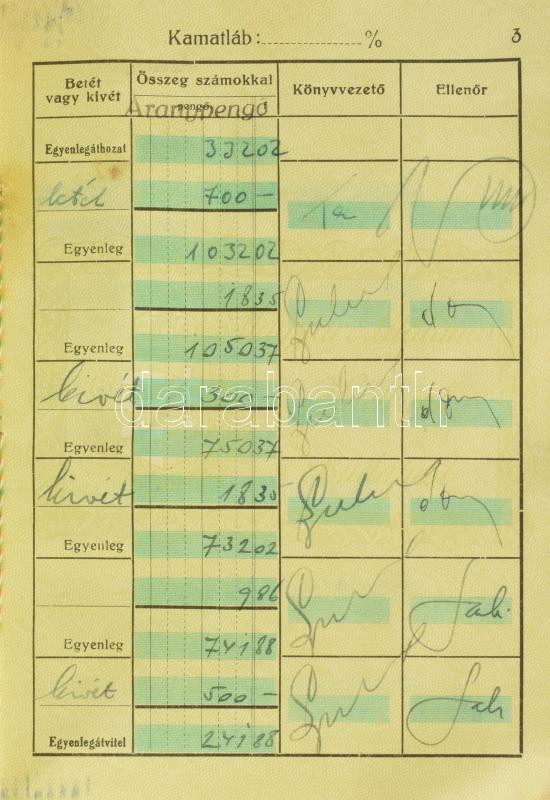 Kamatláb: %
3
Betét vagy kivét
Összeg számokkal
pengő f
Könyvvezető
Ellenőr
Aranypengő
Egyenlegáthozat 33202
betét 700 –
Egyenleg 103202
1835
Egyenleg 105037
kivét 300 –
darabanth
Egyenleg 75037
kivét 1835
Egyenleg 73202
986
Egyenleg 74188
kivét 500 –
Egyenlegátvitel 24188